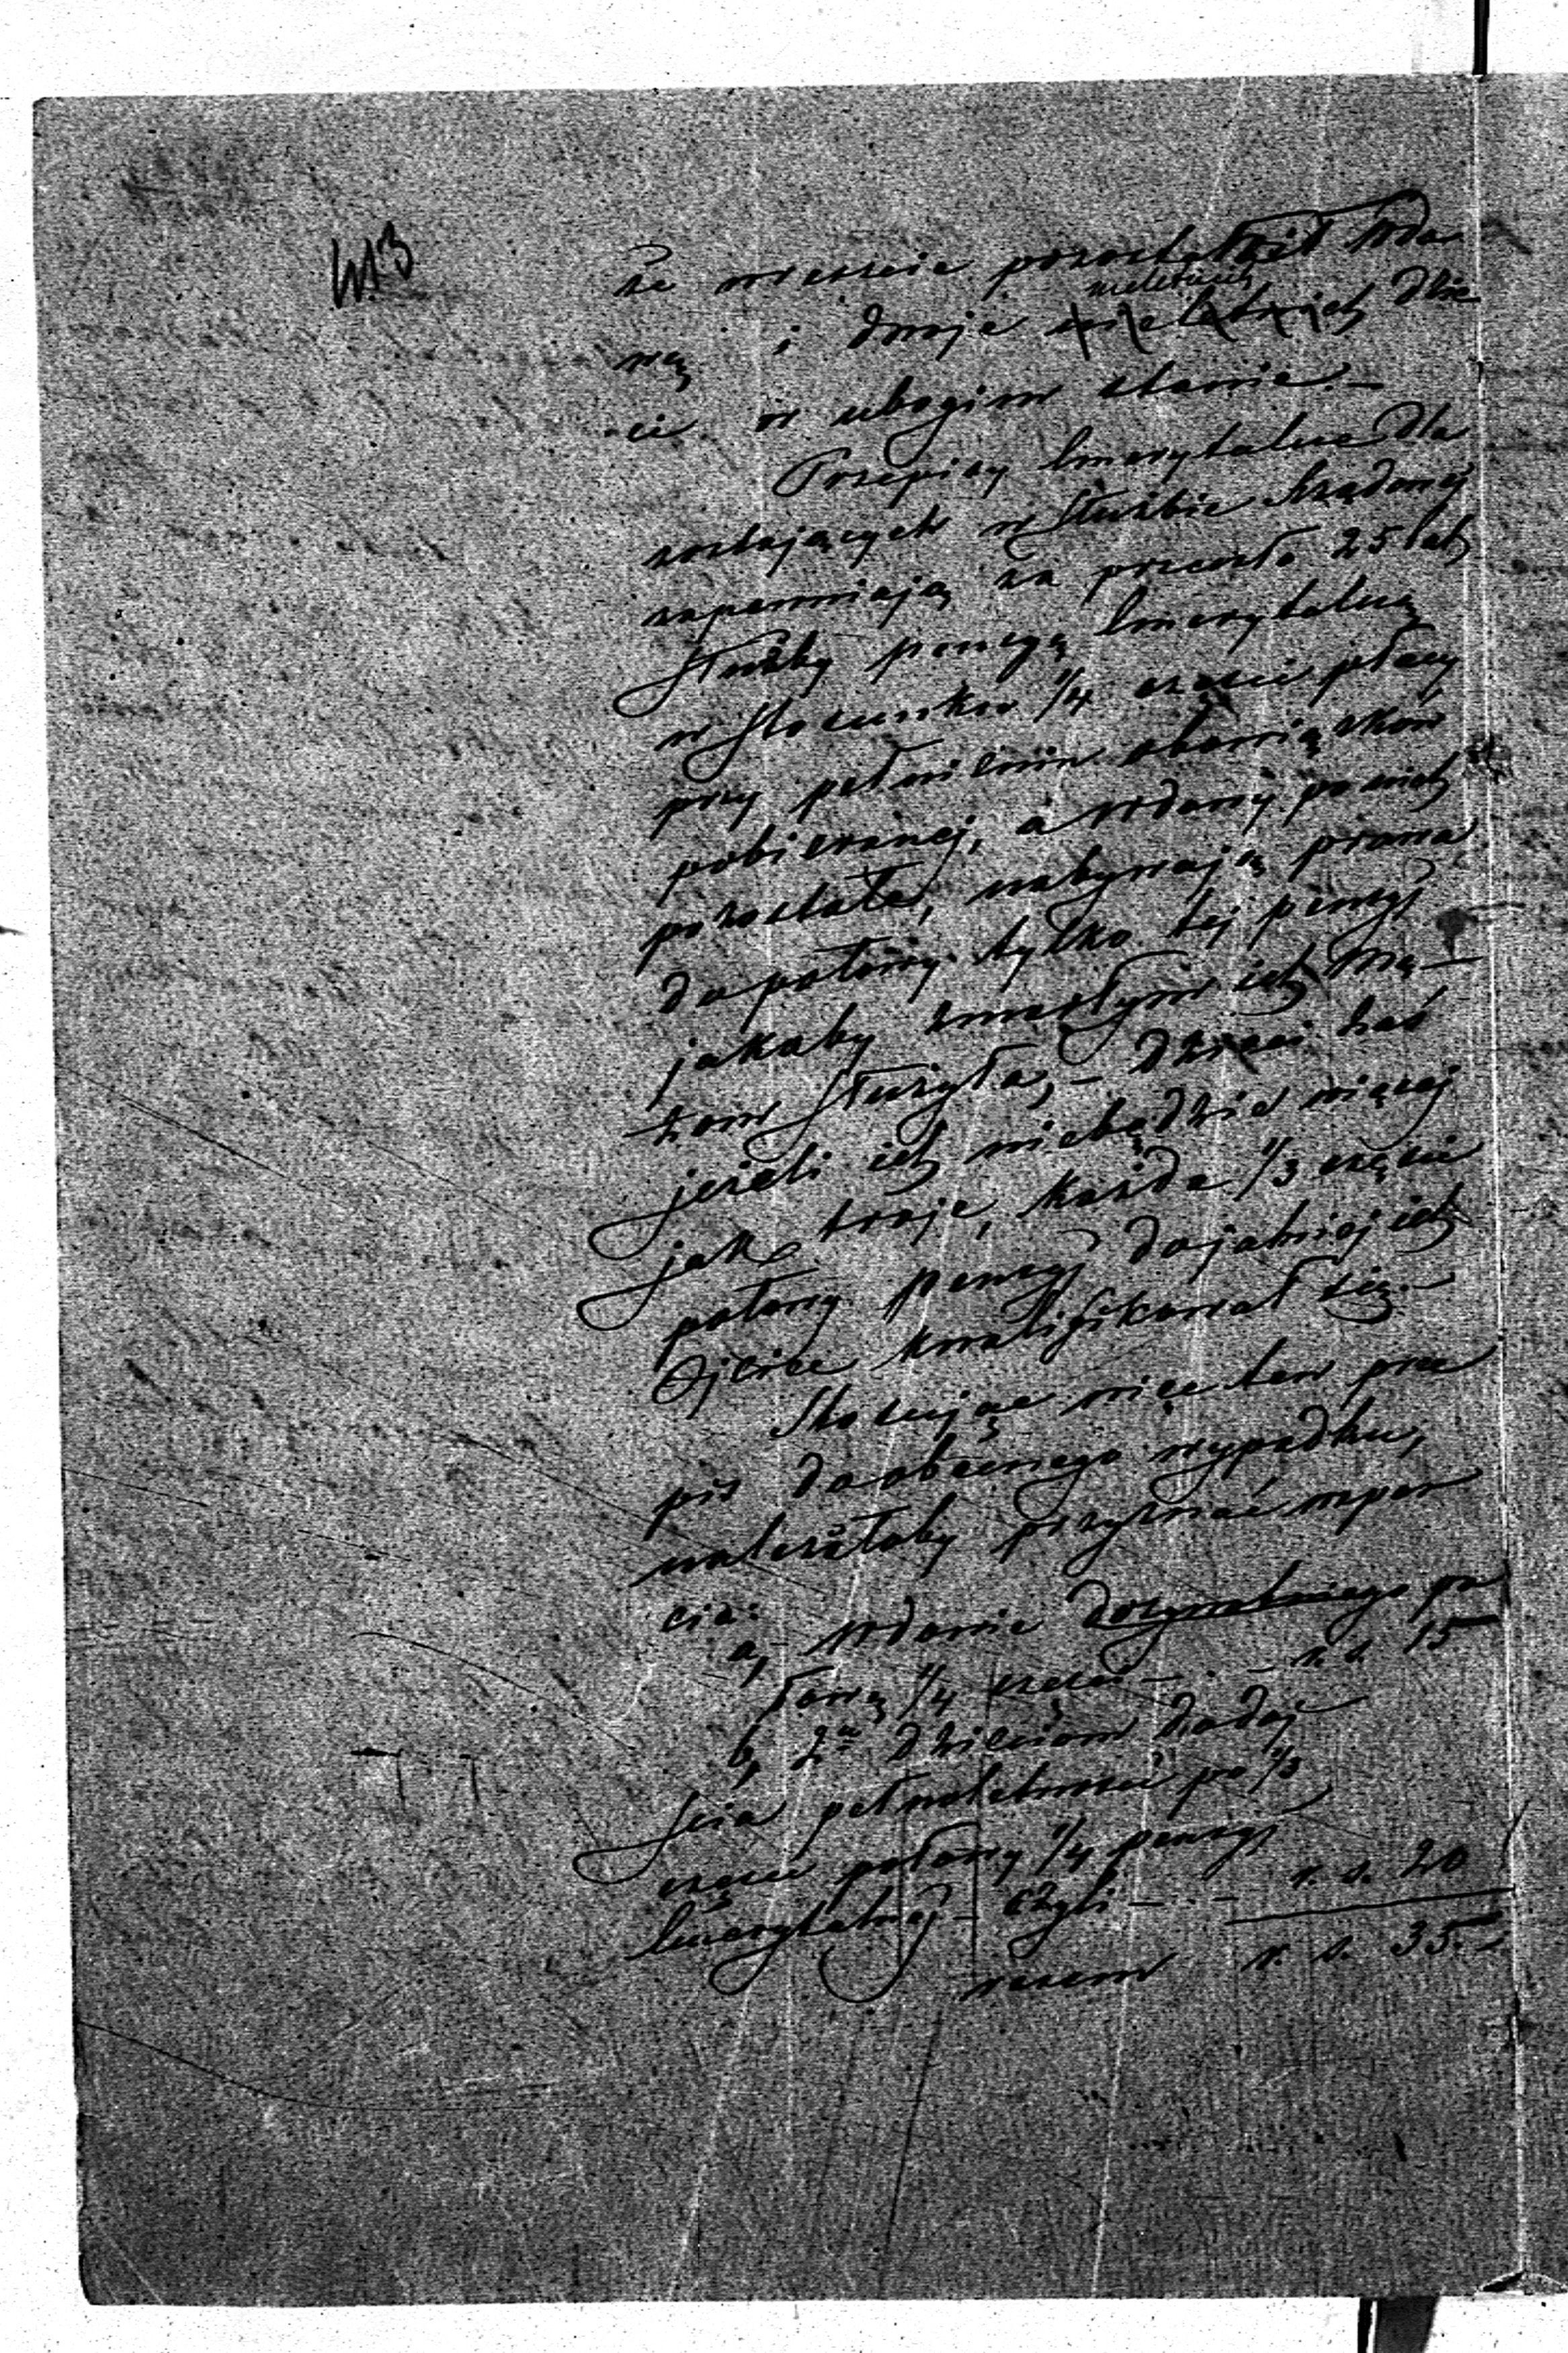 że wreszcie pozostawił wdo
wę i dwoje nieletnich dzie
ci w ubogim stanie. –
Przepisy Emerytalne dla
zostających w Służbie Rządowej
zapewniają za przeszło 25 lat
Służby pensyą Emerytalną
w Stosunku 1/4 części płacy
przy pełnieniu obowiązków
pobieranej, a wdowy po nich
pozostałe, nabywają prawa
do połowy tylko tej pensyi
jakaby zmarłym ich Mę–
żom Służyła, – dzieci zaś
jeżeli ich niebędzie więcej
jak troje, każde 1/3 części
połowy pensyi do jakiej ich
Ojciec kwalifikował się. –
Stosując więc ten prze
pis do obecnego wypadku,
należałoby przyznać wspar
cia:
a, wdowie dożywotniego po
łowę 1/4 części – . – r. s. 15
b, 2u dzieciom do doj
ścia pełnoletności po 1/3
części połowy 1/4 pensyi
Emerytalnej – czyli – . – r. s. 20
razem r. s. 35. –